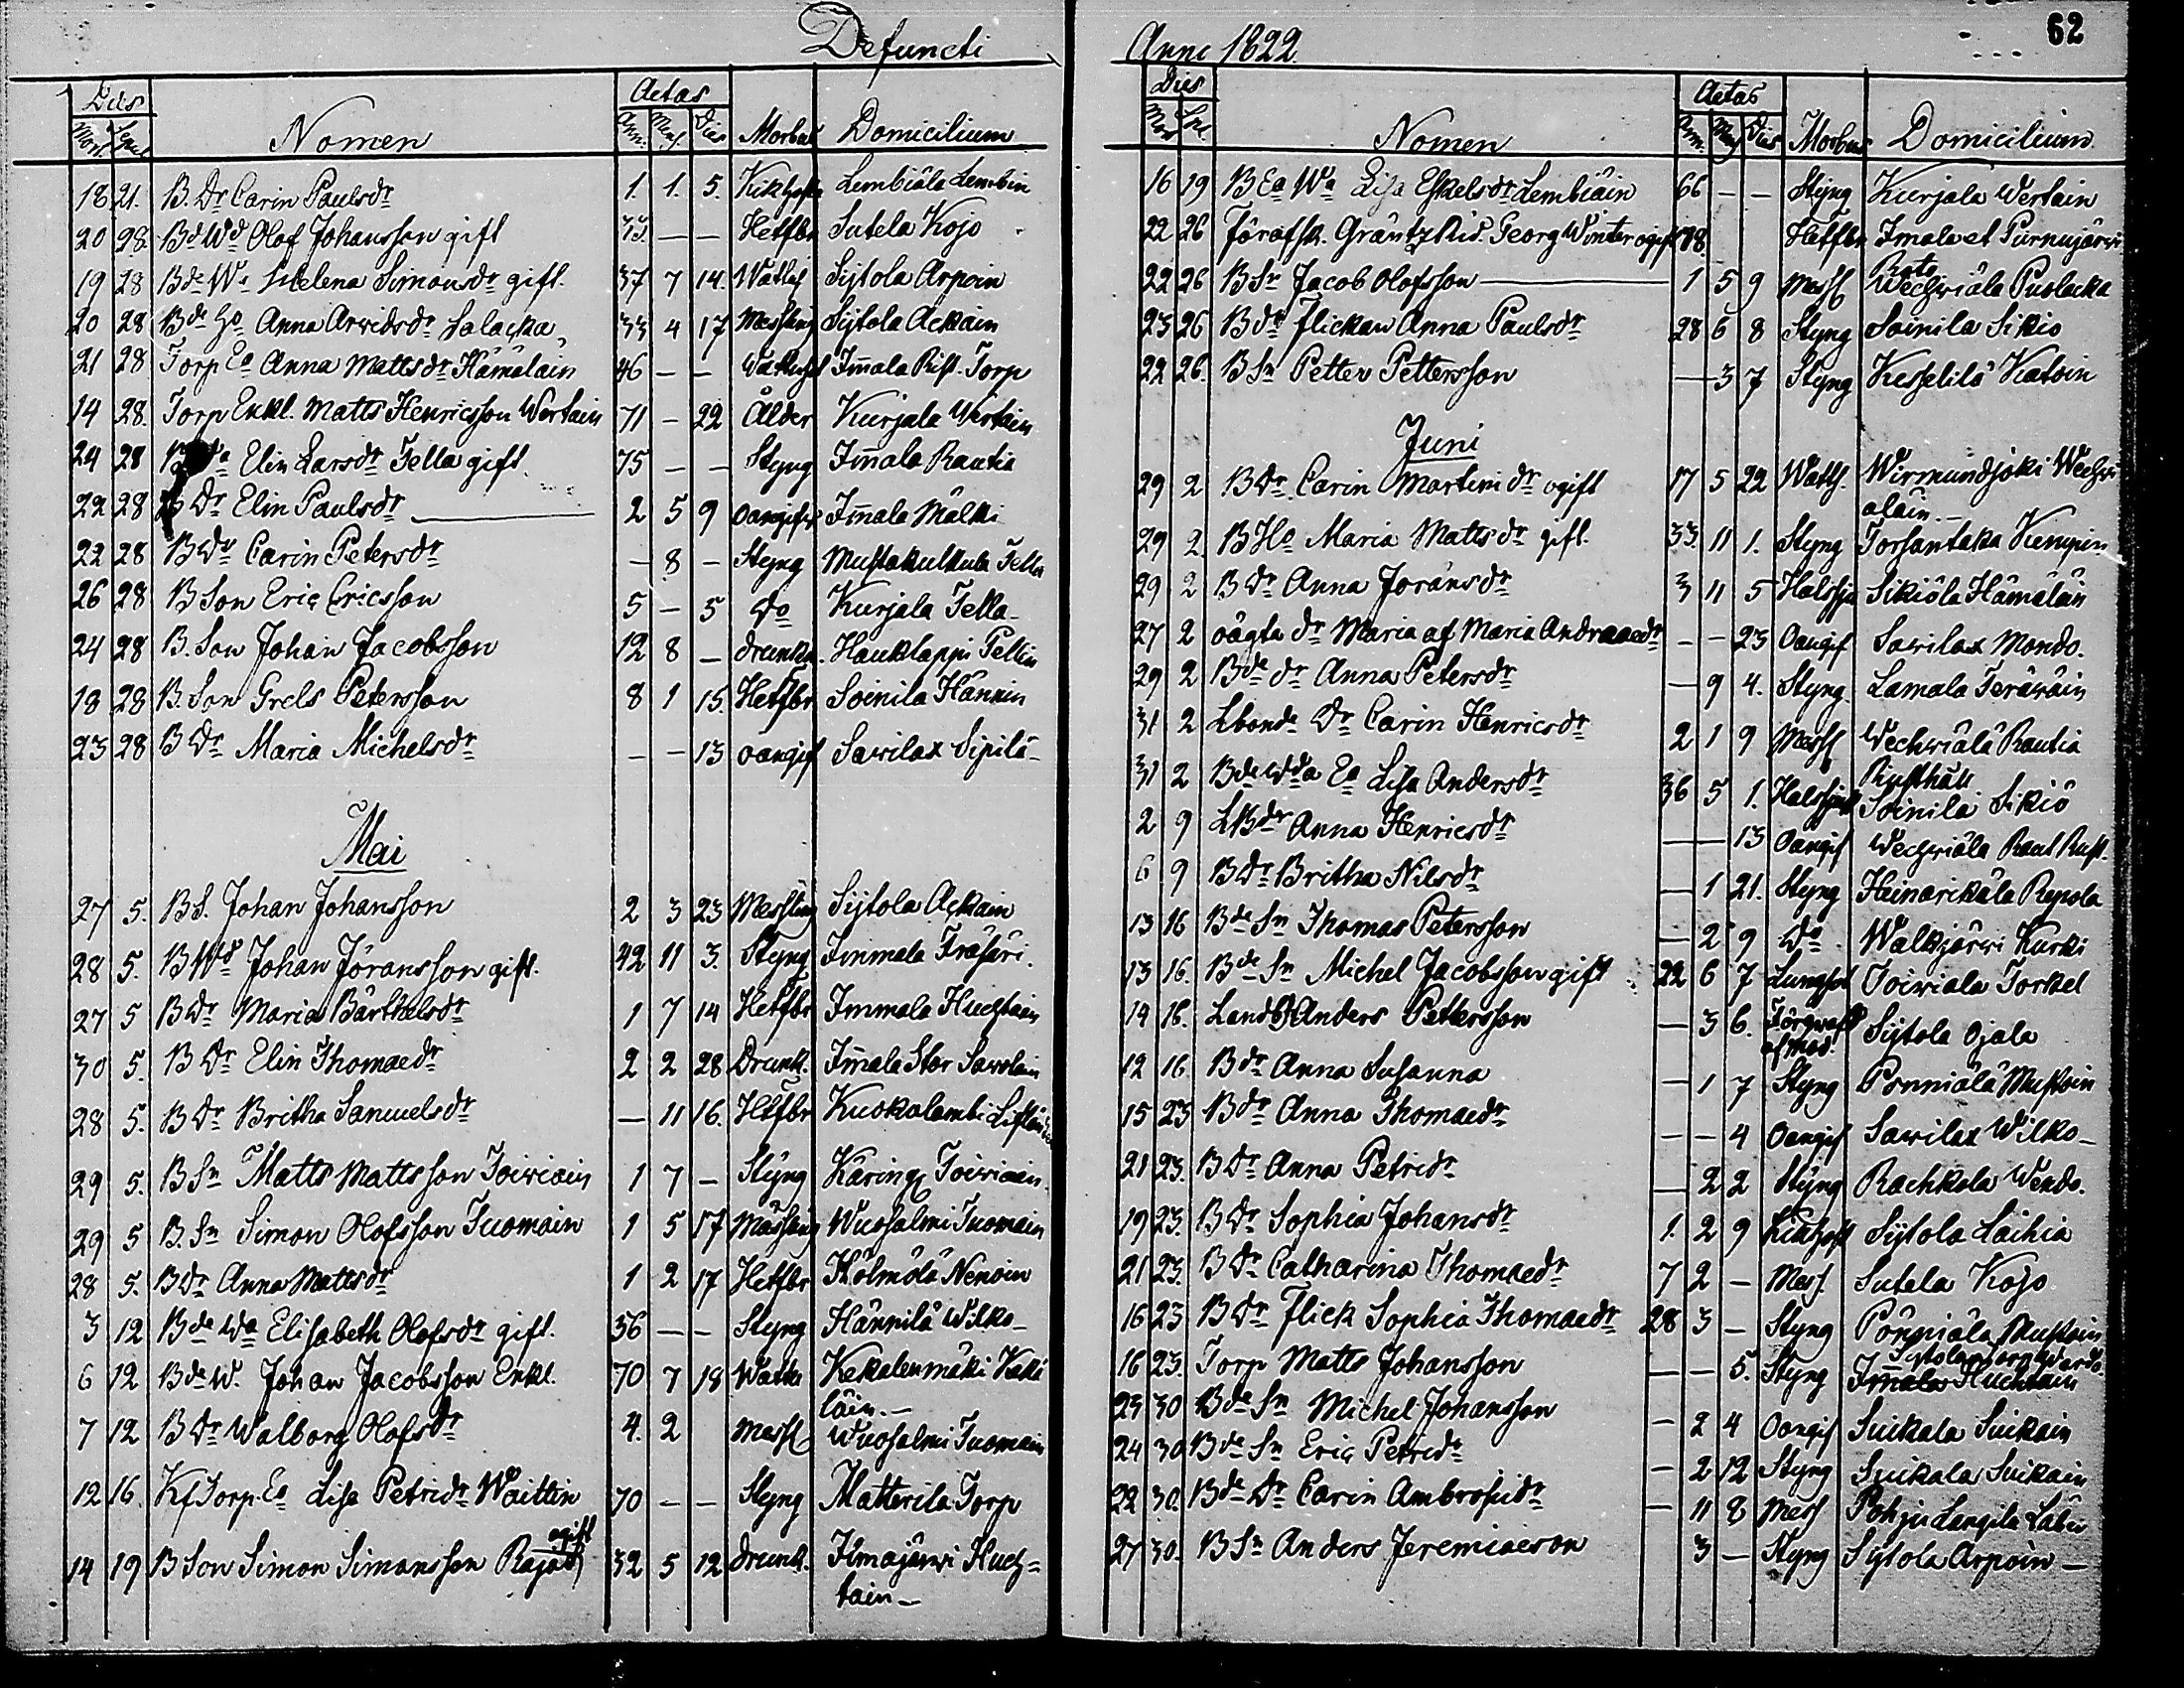 Defuncti
Dies Nomen Aetas Morbus Domicilium
Mort. Sepul. Ann. Mens. Dies
18 21. B. Dr Carin Paulsdr 1. 1. 5. Kikhosta Lembiäla Lembin
20 28. Bd Wd Olof Johansson gift 43. — — Hetsfbr Sutela Kojo
19 28 Bde We Helena Simonsdr gift. 37 7 14. Wattus Sijtola Arpoin
20 28 Bde Ho Anna Arvidsdr Salacka 33 4 17 Messling Sijtola Ackain
21 28 Torp Ea Anna Mattsdr Hämäläin 46 — — Imala Rist. Torp
14 28. Torp Enkl. Matts Henricsson Wertain 71 — 22 Ålder Kurjala Wertain
24 28 Elin Larsdr Tella gift. 75 — — Styng Imala Rautia
22 28 B Dr Elin Paulsdr — 2 5 9 oangifv Imala Mälki
22 28 B Dr Carin Petersdr — 8 — Styng Mustakulkula Tella
26 28 B Son Eric Ericsson 5 — 5 Do Kurjala Tella —
24 28 B. Son Johan Jacobsson 12 8 — drunkn. Hauklappi Pellin
18 28 B. Son Grels Petersson 8 1 15. Hetsfbr Soinila Hännin
23 28 B Dr Maria Michelsdr — — 13 oangif Savilax Sipilä —
Mai
27 5. B S. Johan Johansson 2 3 23 Messling Sijtola Ackain
28 5. B Wd Johan Jöransson gift. 42 11 3. Styng Immala Träsäri.
27 5 B Dr Maria Bärthelsdr 1 7 14 Hetsfbr Immala Huchtain
30 5. B Dr Elin Thomaedr 2 2 28 Drunk. Imala Stor Sawolain
28 5. B Dr Britha Samuelsdr — 11 16. Hetsfbr Kuokalambi
29 5. B Sn Matts Mattsson Toiviain 1 7 — Styng Käringi Toiviain
29 5 B. Sn Simon Olofsson Tuomain 1 5 17 Mässling Wuosalmi Tuomain
28 5. B Dr Anna Mattsdr 1 2 17 Hetsfbr Kolmölä Nenoin
3 12 Bde Wa Elisabeth Olofsdr gift. 36 — — Styng Hännilä Wilko —
6 12 Bde W. Johan Jacobsson Enkl. 70 7 18 Watts Kekalenmäki Kaki
läin. —
7 12 B Dr Walborg Olofsdr 4. 2 Messl Wuosalmi Tuomain
12 16. Kf Torp. Ea Lisa Petridr Waittin 70 — — Styng Matterila Torp
ogift
14 19 B Son Simon Simonsson Rajat 32 5 12 drunk. Ilmajärwi Huch=
tain —
Anno 1822.
62
Dies Nomen Aetas Morbus Domicilium
Mort Sepul. Ann. Mens Dies
16 19 B Ea Wa Lisa Eskelsdr Lembiäin 66 — — Styng Kurjala Wertain
22 26 Förafsk. Gräntz Rid. Georg Winter ogift 78. Hetsfbr Imala et Purnujärwi
22 26 B Sn Jacob Olofsson — 1 5 9 Messl Wechwiälä Puolacka
23 26 B dr flickan Anna Paulsdr 28 6 8 Styng Soinila Sikiö
22 26. B Sn Petter Pettersson — 3 7 Styng Kesselilä Katoin
Juni
29 2 B Dr Carin Martinidr ogift 17 5 22 Watts. Wirmundjoki Wechwi
äläin. —
29 2 B Ho Maria Mattsdr gift. 33. 11 1. Styng Torsantaka Kempin
29 2 B Dr Anna Joransdr 3 11 5 Halssju Sikiölä Hämäläin
27 2 oägta dr Maria af Maria Andraaedr — — 23 Oangif Savilax Mondo.
29 2 Bde dr Anna Petersdr — 9 4. Styng. Lamala Teräwäin
31 2 Lbonde Dr Carin Henricsdr 2 1 9 Messl Wechwiälä Rautia
Rusthåll
31 2 Bde Wda Ea Lisa Andersdr 36 5 1. Halssjuk Soinila Sikiö
2 9 L B dr Anna Henricsdr — — 13 Oangif Wechwiälä Raut Rust.
6 9 B Dr Britha Nilsdr — 1 21. Styng Heinarikäla Repola
13 16 Bde Sn Thomas Petersson — 2 9 Do Walkjärwi Kurki
13 16. Bde Sn Michel Jacobsson gift 22 6 7 Lungsot Toiwiala Torkel
14 16. Landb Anders Pettersson — 3 6. Förqwafd Sijtola Ojala
af mod.
12 16. B dr Anna Susanna — 1 7 Styng Ponniälä Mustoin
15 23 B dr Anna Thomaedr — — 4 Oangif Savilax Wilko —
21 23. B Dr Anna Petridr — 2 2 Styng Rachkola Wendo.
19 23. B Dr Sophia Johansdr 1. 2 9 Kikhost Sijtola Laihia
21 23. B Dr Catharina Thomaedr 7 2 — Mess. Sutela Kojo
16 23 B Dr Flick Sophia Thomaedr 28 3 — Styng Pönniälä Mustoin
16 23. Torp Matts Johansson — — 5. Styng Imala Huchtain
23 30 Bde Sn Michel Johansson — 2 4 Oangif Suikala Suikain
24 30 Bde Sn Eric Petridr — 2 12 Styng Suikala Suikain
22 30. Bde Dr Carin Ambrosidr — 11 8 Mess Pohju Langila
27 30. B Sn Anders Jeremiaeson 3 — Styng Sijtola Arpoin —